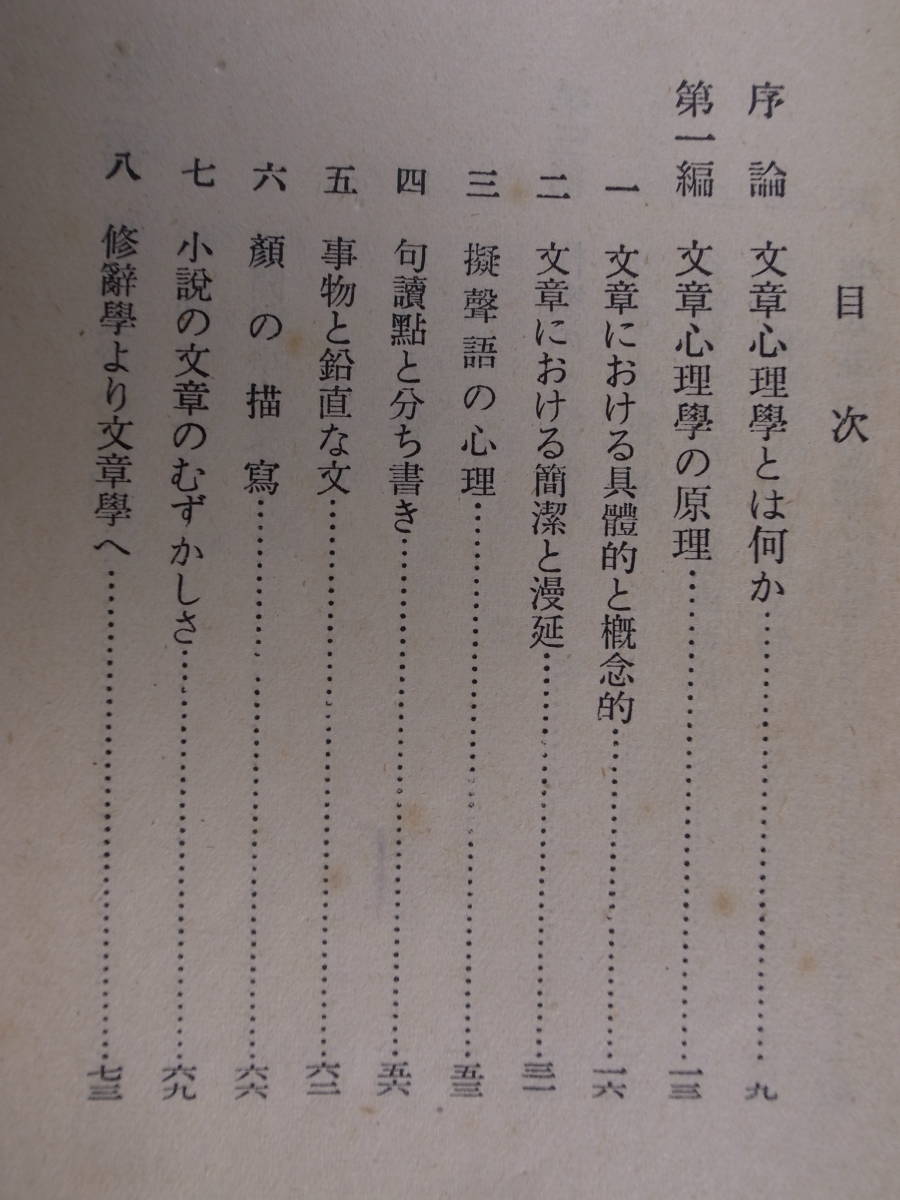 目次
序論 文章心理學とは何か……………………九
第一編 文章心理學の原理……………………一三
一 文章における具體的と槪念的……………………一六
二 文章における簡潔と漫延……………………三一
三 擬聲語の心理……………………五三
四 句讀點と分ち書き……………………五六
五 事物と鉛直な文……………………六二
六 顏の描寫……………………六六
七 小說の文章のむずかしさ……………………六九
八 修辭學より文章學へ……………………七三